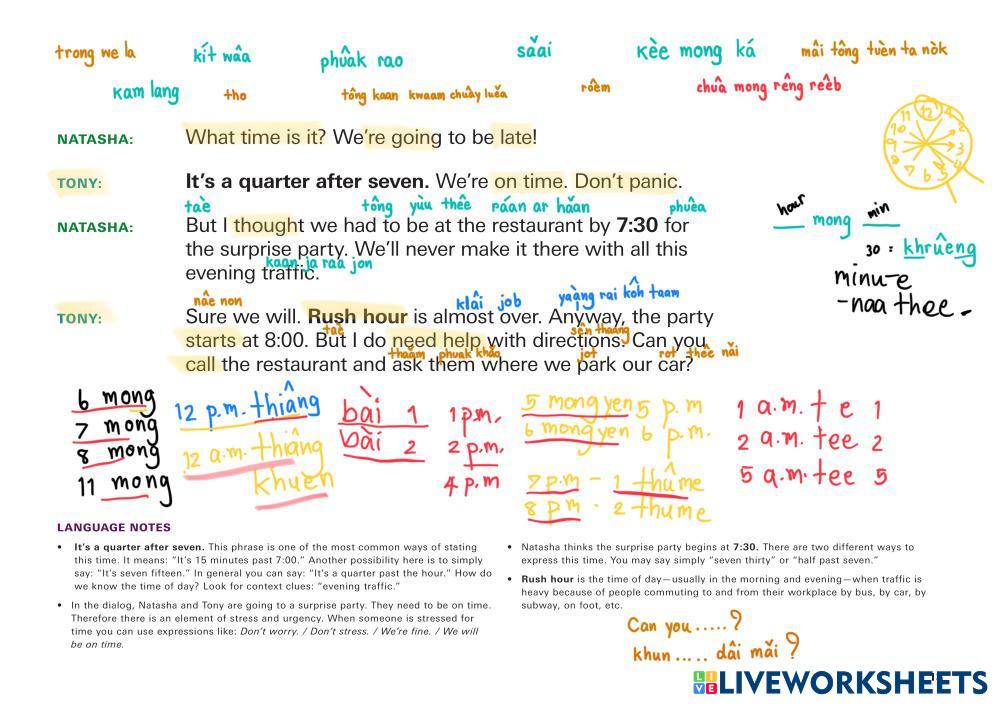 trong we la kít wâa phûak rao sǎai kèe mong ká mâi tông tuèn ta nòk
kam lang tho tông kaan kwaam chuây luěa rôem chuâ mong rêng rêeb
NATASHA: What time is it? We're going to be late!
TONY: It's a quarter after seven. We're on time. Don't panic.
taè tông yùu thêe ráan ar hǎan phuêa
NATASHA: But I thought we had to be at the restaurant by 7:30 for
the surprise party. We'll never make it there with all this
evening traffic.
kaan ja raa jon
nâe non klâi job yaàng rai kôh taam
TONY: Sure we will. Rush hour is almost over. Anyway, the party
taè sên thaang
starts at 8:00. But I do need help with directions. Can you
thaǎm phuak khǎo jot rot thêe nǎi
call the restaurant and ask them where we park our car?
12 11 10 9 8 7 6 5 3
hour mong min
30 = khrûeng
minu-e
-naa thee-
6 mong 12 p.m. thiâng bài 1 1 p.m. 5 mong yen 5 p.m 1 a.m. t e 1
7 mong bài 2 2 p.m. 6 mong yen 6 p.m. 2 a.m. tee 2
8 mong 12 a.m. thiâng 4 p.m 7 p.m - 1 thûme 5 a.m. tee 5
11 mong khuen 8 p m - 2 thume
LANGUAGE NOTES
• It's a quarter after seven. This phrase is one of the most common ways of stating
this time. It means: "It's 15 minutes past 7:00." Another possibility here is to simply
say: "It's seven fifteen." In general you can say: "It's a quarter past the hour." How do
we know the time of day? Look for context clues: "evening traffic."
• In the dialog, Natasha and Tony are going to a surprise party. They need to be on time.
Therefore there is an element of stress and urgency. When someone is stressed for
time you can use expressions like: Don't worry. / Don't stress. / We're fine. / We will
be on time.
• Natasha thinks the surprise party begins at 7:30. There are two different ways to
express this time. You may say simply "seven thirty" or "half past seven."
• Rush hour is the time of day—usually in the morning and evening—when traffic is
heavy because of people commuting to and from their workplace by bus, by car, by
subway, on foot, etc.
Can you .....?
khun ..... dâi mǎi ?
LIVE LIVEWORKSHEETS